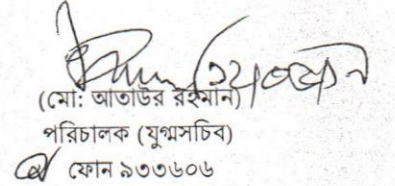 (মো: আতাউর রহমান)
পরিচালক (যুগ্মসচিব)
ফোন ৯৩৩৬০৬